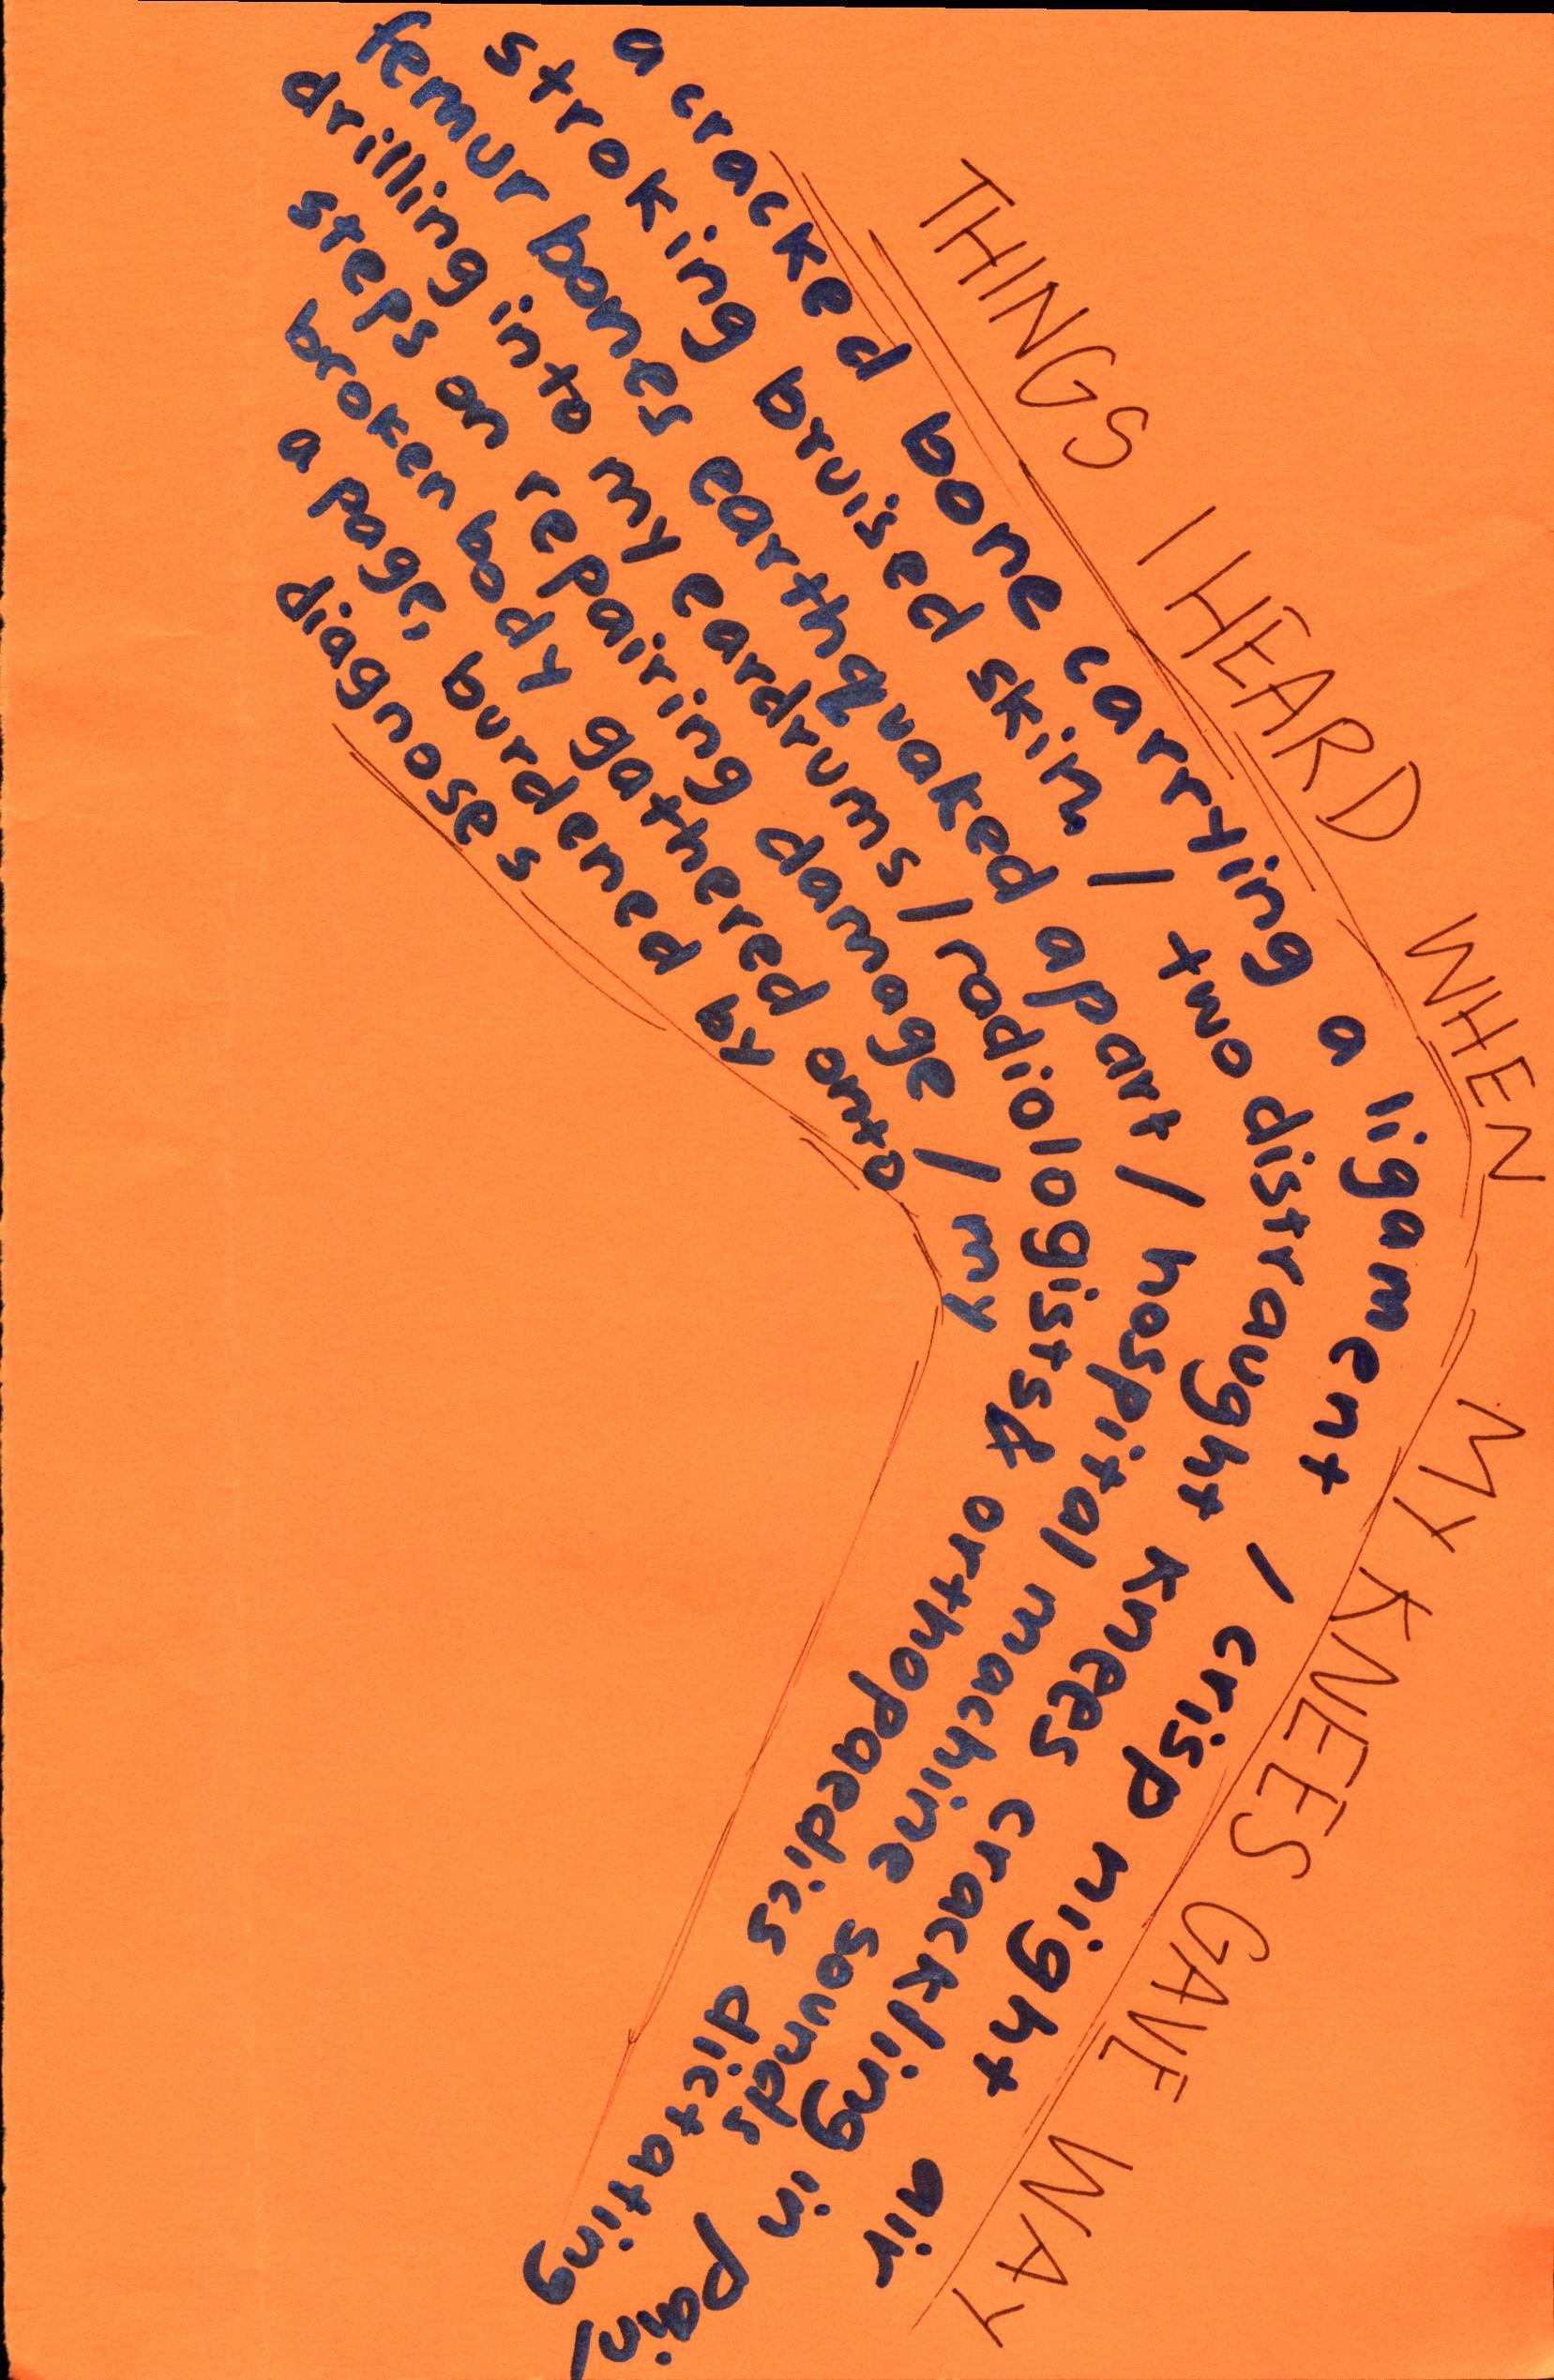 THINGS I HEARD WHEN MY KNEES GAVE WAY
a cracked bone carrying a ligament / crisp night air
stroking bruised skin / two distraught knees crackling in pain/
femur bones earthquaked apart / hospital machine sounds
drilling into my eardrums / radiologists & orthopaedics dictating
steps on repairing damage / my
broken body gathered onto
a page, burdened by
diagnoses